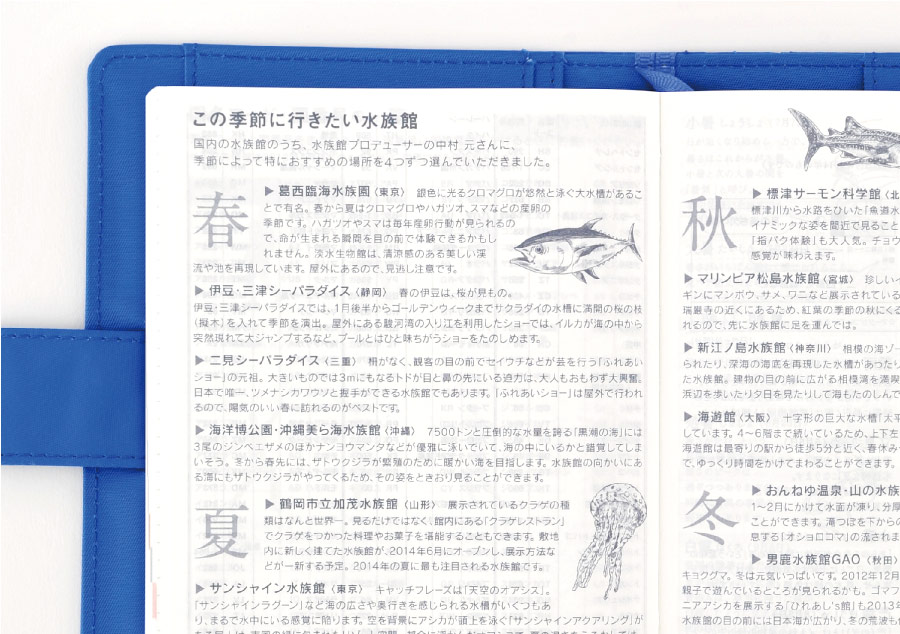 この季節に行きたい水族館
国内の水族館のうち、水族館プロデューサーの中村 元さんに、
季節によって特におすすめの場所を4つずつ選んでいただきました。
春
▶ 葛西臨海水族園〈東京〉 銀色に光るクロマグロが悠然と泳ぐ大水槽があるこ
とで有名。春から夏はクロマグロやハガツオ、スマなどの産卵の
季節です。ハガツオやスマは毎年産卵行動が見られるの
で、命が生まれる瞬間を目の前で体験できるかもし
れません。淡水生物館は、清涼感のある美しい渓
流や池を再現しています。屋外にあるので、見逃し注意です。
▶ 伊豆・三津シーパラダイス〈静岡〉 春の伊豆は、桜が見もの。
伊豆・三津シーパラダイスでは、1月後半からゴールデンウィークまでサクラダイの水槽に満開の桜の枝
（擬木）を入れて季節を演出。屋外にある駿河湾の入り江を利用したショーでは、イルカが海の中から
突然現れて大ジャンプするなど、プールとはひと味ちがうショーをたのしめます。
▶ 二見シーパラダイス〈三重〉 柵がなく、観客の目の前でセイウチなどが芸を行う「ふれあい
ショー」の元祖。大きいものでは3mにもなるトドが目と鼻の先にいる迫力は、大人もおもわず大興奮。
日本で唯一、ツメナシカワウソと握手ができる水族館でもあります。「ふれあいショー」は屋外で行われ
るので、陽気のいい春に訪れるのがベストです。
▶ 海洋博公園・沖縄美ら海水族館〈沖縄〉 7500トンと圧倒的な水量を誇る「黒潮の海」には
3尾のジンベエザメのほかナンヨウマンタなどが優雅に泳いでいて、海の中にいるかと錯覚してしま
いそう。冬から春先には、ザトウクジラが繁殖のために暖かい海を目指します。水族館の向かいにあ
る海にもザトウクジラがやってくるため、その姿をときおり見ることができます。
夏
▶ 鶴岡市立加茂水族館〈山形〉 展示されているクラゲの種
類はなんと世界一。見るだけではなく、館内にある「クラゲレストラン」
でクラゲをつかった料理やお菓子を堪能することもできます。敷地
内に新しく建てた水族館が、2014年6月にオープンし、展示方法な
どが一新する予定。2014年の夏に最も注目される水族館です。
▶ サンシャイン水族館〈東京〉 キャッチフレーズは「天空のオアシス」。
「サンシャインラグーン」など海の広さや奥行きを感じられる水槽がいくつもあ
り、まるで水中にいる感覚に陥ります。空を背景にアシカが頭上を泳ぐ「サンシャインアクアリング」が
秋
▶ 標津サーモン科学館〈北
標津川から水路をひいた「魚道水
イナミックな姿を間近で見ること
「指パク体験」も大人気。チョウ
感覚が味わえます。
▶ マリンピア松島水族館〈宮城〉 珍しい
ギンにマンボウ、サメ、ワニなど展示されている
瑞巌寺の近くにあるため、紅葉の季節の秋にくる
れるので、先に水族館に足を運んでは。
▶ 新江ノ島水族館〈神奈川〉 相模の海ゾー
られたり、深海の海底を再現した水槽があったり
た水族館。建物の目の前に広がる相模湾を満喫
浜辺を歩いたり夕日を見たりして海もたのしんで
▶ 海遊館〈大阪〉 十字形の巨大な水槽「太平
しています。4〜6階まで続いているため、上下左
海遊館は最寄りの駅から徒歩5分と近く、春休み
で、ゆっくり時間をかけてまわることができます。
冬
▶ おんねゆ温泉・山の水族
1〜2月にかけて水面が凍り、分厚
ことができます。滝つぼを下からの
息する「オショロコマ」の流されま
▶ 男鹿水族館GAO〈秋田〉
キョクグマ。冬は元気いっぱいです。2012年12月
親子で遊んでいるところが見られるかも。ゴマフ
ニアアシカを展示する「ひれあし's館」も2013年
水族館の目の前には日本海が広がり、冬の荒波も